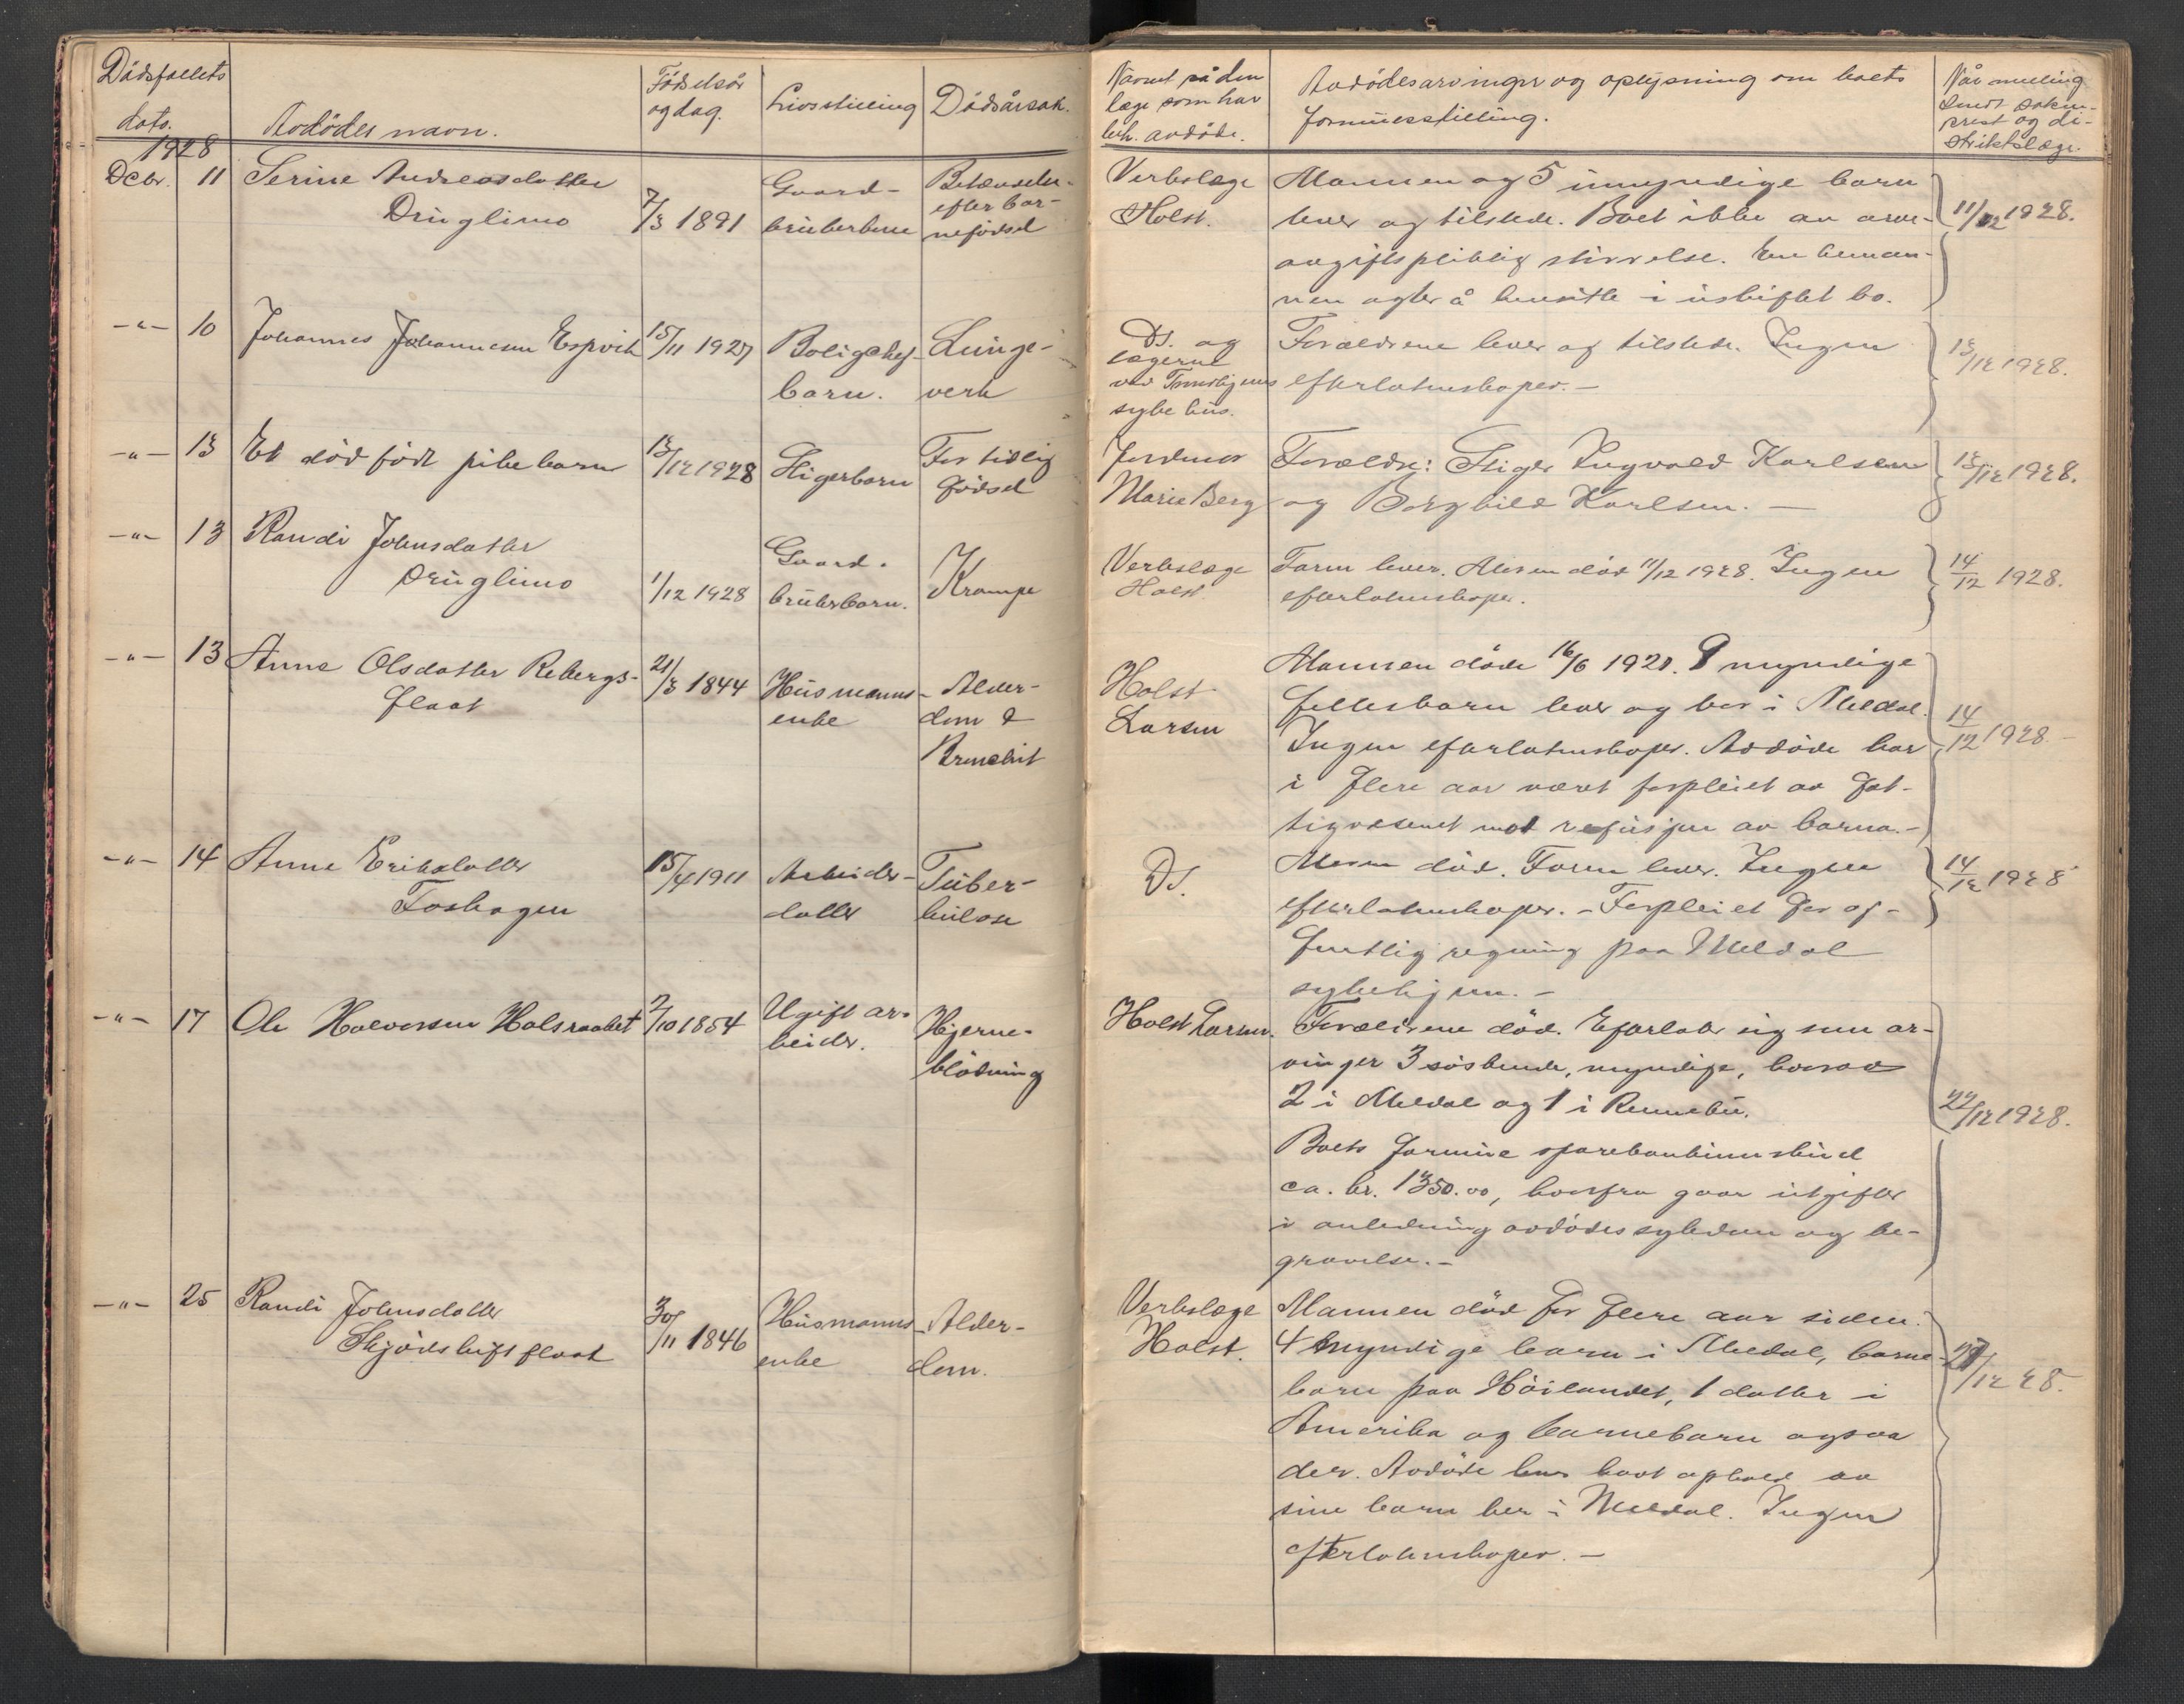 Dödsfallets
dato.
Avdödes navn.
Födselsår
og dag.
Livsstilling
Dödsårsak.
Navnet på den
læge som har
beh. avdöde.
Avdödes arvinger og oplysning om boets
formuesstilling.
Når melling
sendt sokne-
prest og di-
striktslæge.
1928
Decbr. 11 Serine Andreasdatter
Drüglimo
7/3 1891
Gaard-
brükerkone
Betændelse
efter bar-
nefödsel
Verkslæge
Holst.
Mannen og 5 ümyndige barn
lever og tilstede. Boet ikke av arve-
avgiftspliktig störrelse. Enkeman-
nen agter å hensitte i üskiftet bo.
11/12 1928.
-"- 10 Johannes Johannesen Espvik
15/11 1927
Barn.
Lünge-
verk
Ds. og
lægerne
ved Trondhjems
sykehüs.
Forældrene lever og tilstede. Ingen
efterlatenskaper. -
13/12 1928.
-"- 13 Et död födt pikebarn
13/12 1928
Stigerbarn
For tidlig
födsel
Jordmor
Marie Berg
Forældre: Stiger Ingvald Karlsen
og Borghild Karlsen. -
13/12 1928.
-"- 13 Randi Johnsdatter
Drüglimo
1/12 1928
Gaard-
brükerbarn.
Krampe
Verkslæge
Holst.
Faren lever. Moren död 11/12 1928. Ingen
efterlatenskaper.
14/12 1928.
-"- 13 Anne Olsdatter Rebergs-
flaat
21/3 1844
Hüsmanns-
enke
Alder-
dom &
Bronchit
Holst
Larsen
Mannen döde 16/6 1921. 9 myndige
fellesbarn lever og bor i Meldal.
Ingen efterlatenskaper. Avdöde har
i flere aar været forpleiet av fat-
tigvæsenet mot refüsjon av barna. -
14/12 1928 -
-"- 14 Anne Eriksdatter
Foshagen
15/4 1911
Arbeider-
datter
Tüber-
külose
Ds.
Moren död. Faren lever. Ingen
efterlatenskaper. - Forpleiet for of-
fentlig regning paa Meldal
sykehjem. -
14/12 1928
-"- 17 Ole Halvorsen Halsraabet
2/10 1854
Ugift ar-
beider.
Hjerne-
blödning
Holst Larsen.
Forældrene död. Efterlater sig som ar-
vinger 3 söskende, myndige, hvorav
2 i Meldal og 1 i Rennebü.
Boets formüe sparebankinnsküd
ca. kr. 1350.00, hvorfra gaar ütgifter
i anledning avdödes sykdom og be-
gravelse. -
22/12 1928.
-"- 25 Randi Johnsdatter
Skjödskiftflaat
30/11 1846
Hüsmanns-
enke
Alder-
dom.
Verkslæge
Holst.
Mannen död for flere aar siden.
4 myndige barn i Meldal, barne-
barn paa Höilandet, 1 datter i
Amerika og barnebarn ogsaa
der. Avdöde har havt ophold av
sine barn her i Meldal. Ingen
efterlatenskaper. -
27/12 28.